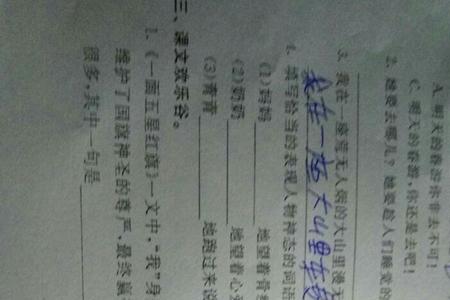 A. 明天的春游你非去不可！
C. 明天的春游，你还是去吧！
2. 她要去哪儿？她要趁人们睡觉的
3. 我在一座荒无人烟的大山里漫
我在一座大山里
4. 填写恰当的表现人物神态的词语
(1)妈妈____地望着
(2)奶奶____地望着心
(3)青青____地跑过来说
三、课文欢乐谷。
1.《一面五星红旗》一文中，“我”身
维护了国旗神圣的尊严，最终赢
很多，其中一句是